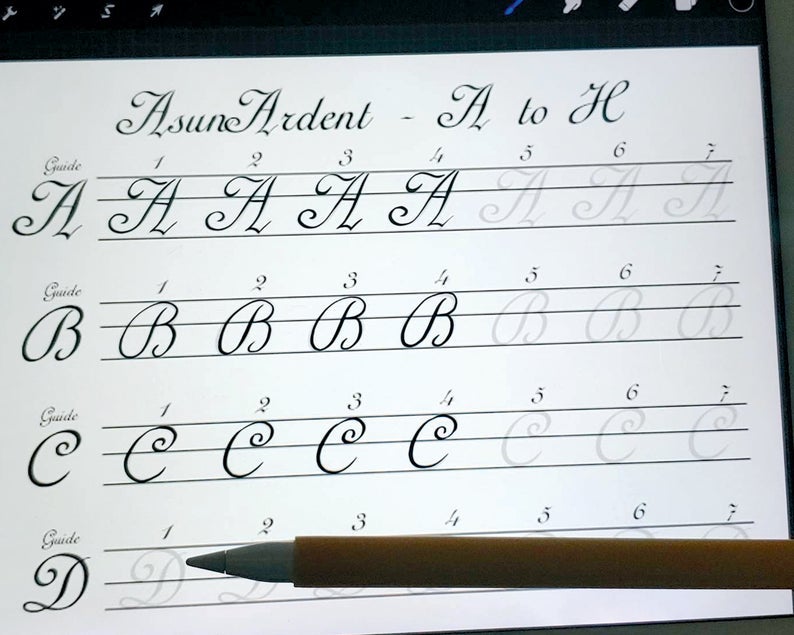 AsunArdent - A to H
Guide 1 2 3 4 5 6 7
A A A A A A A A
Guide 1 2 3 4 5 6 7
B B B B B B B B
Guide 1 2 3 4 5 6 7
C C C C C C C C
Guide 1 2 3 4 5 6 7
D D D D